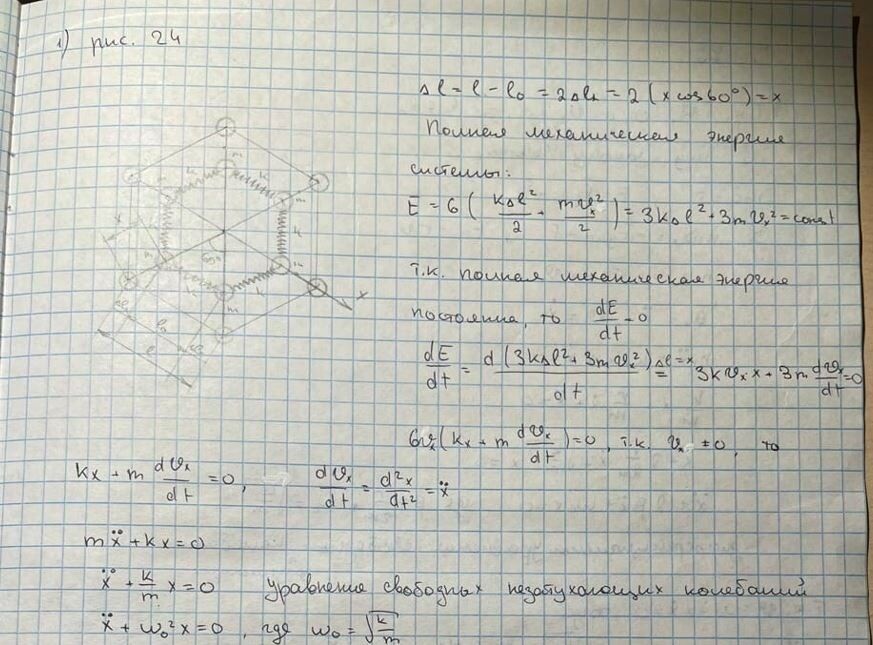 1) рис. 24
Δl = l - l₀ = 2Δlₓ = 2 (x cos 60°) = x
Полная механическая энергия
системы:
E = 6 ( kΔl²/2 + mvₓ²/2 ) = 3kΔl² + 3mvₓ² = const
т.к. полная механическая энергия
постоянна, то dE/dt = 0
dE/dt = d(3kΔl² + 3mvₓ²)/dt = Δl = x 3kvₓx + 3m dvₓ/dt = 0
6vₓ(kx + m dvₓ/dt) = 0, т.к. vₓ ≠ 0, то
kx + m dvₓ/dt = 0, dvₓ/dt = d²x/dt² = ẍ
mẍ + kx = 0
ẍ + k/m x = 0 уравнение свободных незатухающих колебаний
ẍ + ω₀²x = 0, где ω₀ = √(k/m)
m
k
k
m
m
x
k
60°
m
m
k
m
x
l₀
l